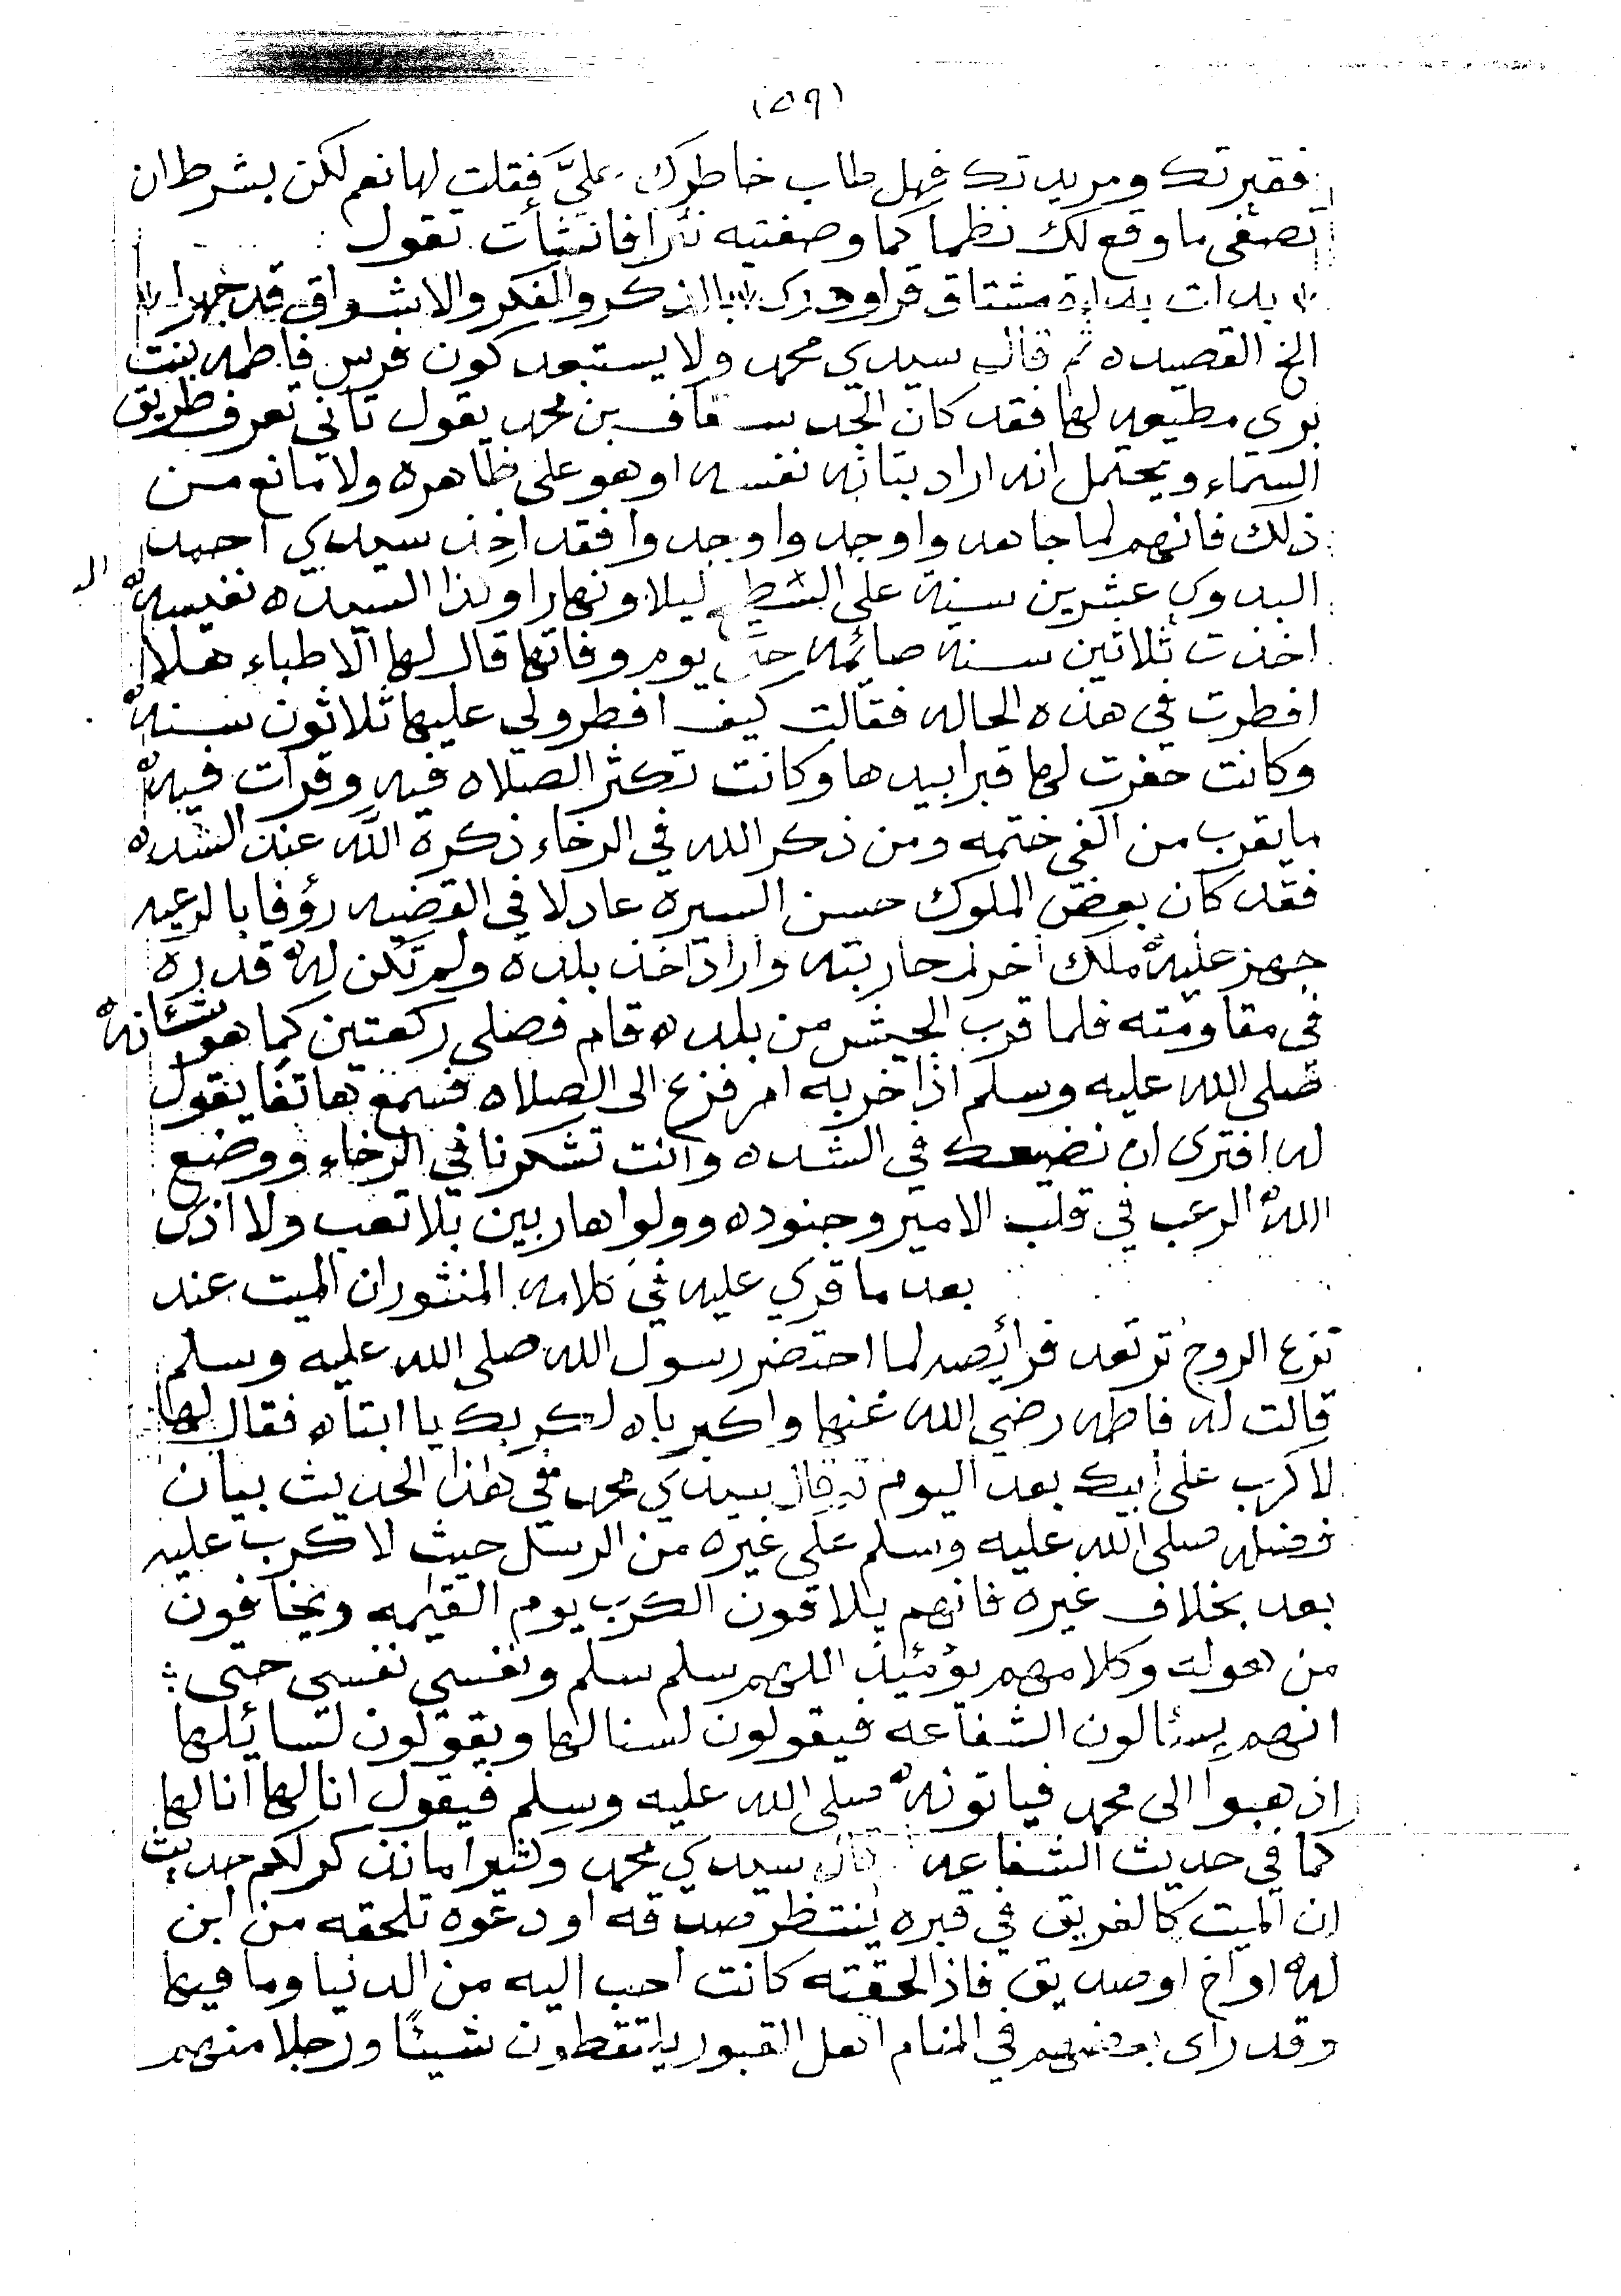 (٥٩)
فقيرتك ومريدتك فهل طاب خاطرك عليَّ فقلت لها نعم لكن بشرط ان
تصفي ما وقع لك نظما كما وصفتيه نثرا فانشأت تقول
بدات بداءة مشتاق قراودرى باالذكر والفكر والاشواق قد جهرا
الخ القصيده ثم قال سيدي محمد ولا يستبعد كون فرس فاطمه بنت
برى مطيعه لها فقد كان الجد سقاف بن محمد يقول تاني تعرف طريق
السماء ويحتمل انه اراد بتانه نفسه او هو على ظاهره ولا مانع من
ذلك فانهم لما جاهدوا وجدوا وجدوا فقد اخذ سيدي احمد
البدوي عشرين سنة على السطح ليلا ونهارا وكذا السيده نفيسه
اخذت ثلاثين سنه صائمه حتى يوم وفاتها قال لها الاطباء هلا
افطرت في هذه الحاله فقالت كيف افطر ولي عليها ثلاثون سنه
وكانت حفرت لها قبرا بيدها وكانت تكثر الصلاه فيه وقرات فيه
ما يقرب من الفي ختمه ومن ذكر الله في الرخاء ذكره الله عند الشده
فقد كان بعض الملوك حسن السيره عادلا في القضيه رؤفا بالرعيه
جهز عليه ملك اخر لمحاربته واراد اخذ بلده ولم تكن له قدره
في مقاومته فلما قرب الجيش من بلده قام فصلى ركعتين كما هو شانه
صلى الله عليه وسلم اذا خربه امر فزع الى الصلاه فسمع هاتفا يقول
له افترى ان نضيعك في الشده وانت تشكرنا في الرخاء ووضع
الله الرعب في قلب الامير وجنوده وولوا هاربين بلا تعب ولا اذى
بعد ما قري عليه في كلامه المنثور ان الميت عند
نزع الروح ترتعد فرائصه لما احتضر رسول الله صلى الله عليه وسلم
قالت له فاطمه رضي الله عنها واكرباه لكربك يا ابتاه فقال لها
لا كرب على ابيك بعد اليوم ثم قال سيدي محمد في هذا الحديث بيان
فضله صلى الله عليه وسلم على غيره من الرسل حيث لا كرب عليه
بعد بخلاف غيره فانهم يلاقون الكرب يوم القيمه ويخافون
من هوله وكلامهم يومئذ اللهم سلم سلم ونفسي نفسي حتى
انهم يسئالون الشفاعه فيقولون لسنا لها ويقولون لسائلها
اذهبوا الى محمد فياتونه صلى الله عليه وسلم فيقول انا لها انا لها
كما في حديث الشفاعه قال سيدي محمد وكثيرا ما نذكر لكم حديث
ان الميت كالغريق في قبره ينتظر صدقه او دعوه تلحقه من ابن
له او اخ او صديق فاذا لحقته كانت احب اليه من الدنيا وما فيها
وقد راى بعضهم في المنام اهل القبور يلتقطون شيئًا ورجلا منهم